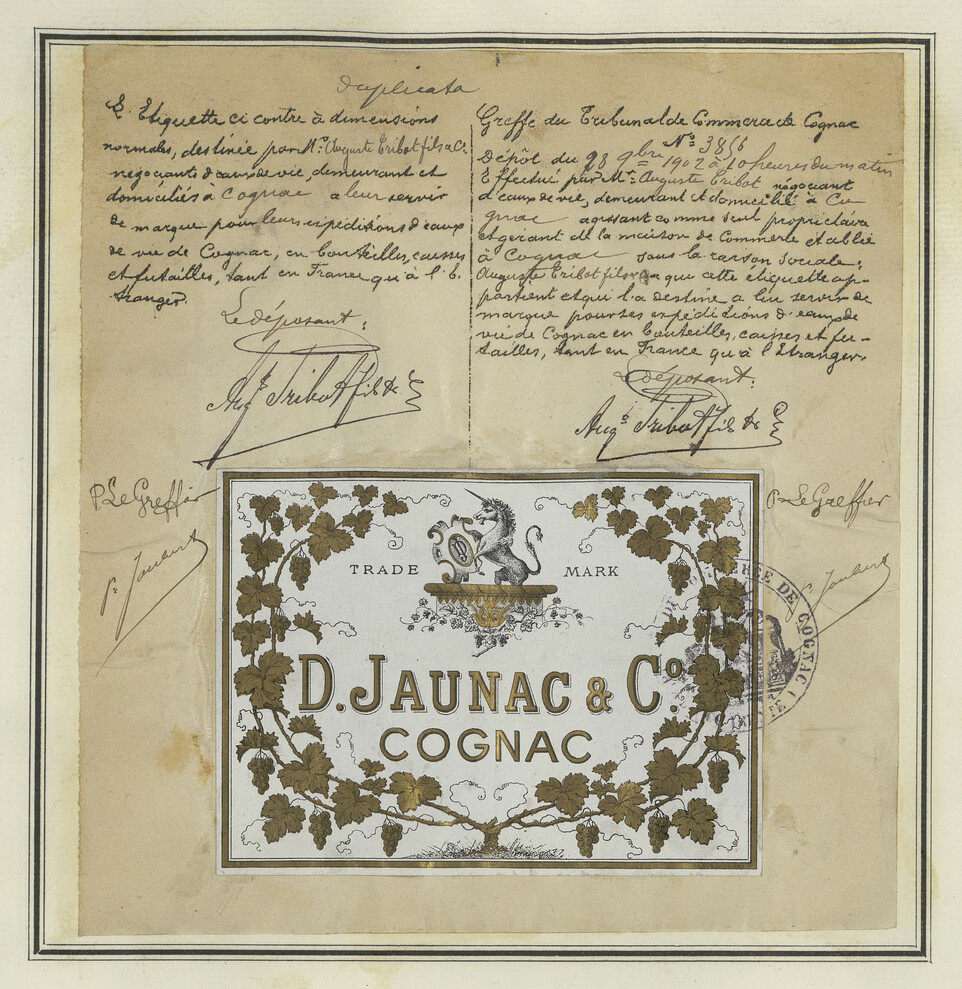 Duplicata
L'Etiquette ci contre à dimensions
normales, destinée par Mr. Auguste Tribot fils & Co.
negociants d'eaux de vie, demeurant et
domiciliés à Cognac a leur servir
de marque pour leurs expéditions d'eaux
de vie de Cognac, en bouteilles, caisses
et futailles, tant en France qu'à l'E-
tranger.
Le déposant:
Aug.te Tribot fils & Co
Greffe du Tribunal de Commerce de Cognac
No. 3856
Dépôt du 28 9bre 1902 à 10 heures du matin
Effectué par Mr. Auguste Tribot négociant
d'eaux de vie, demeurant et domicilié à Co-
gnac agissant comme seul propriétaire
et gérant de la maison de Commerce établie
à Cognac sous la raison sociale:
Auguste Tribot fils & Co que cette étiquette ap-
partient et qu'il a destine a lui servir de
marque pour ses expéditions d'eaux de
vie de Cognac en bouteilles, caisses et fu-
tailles, tant en France qu'à l'Etranger.
Le déposant:
Aug.te Tribot fils & Co
P. Le Greffier
P. Le Greffier
TRADE MARK
D. JAUNAC & Co.
COGNAC
DE COGNAC